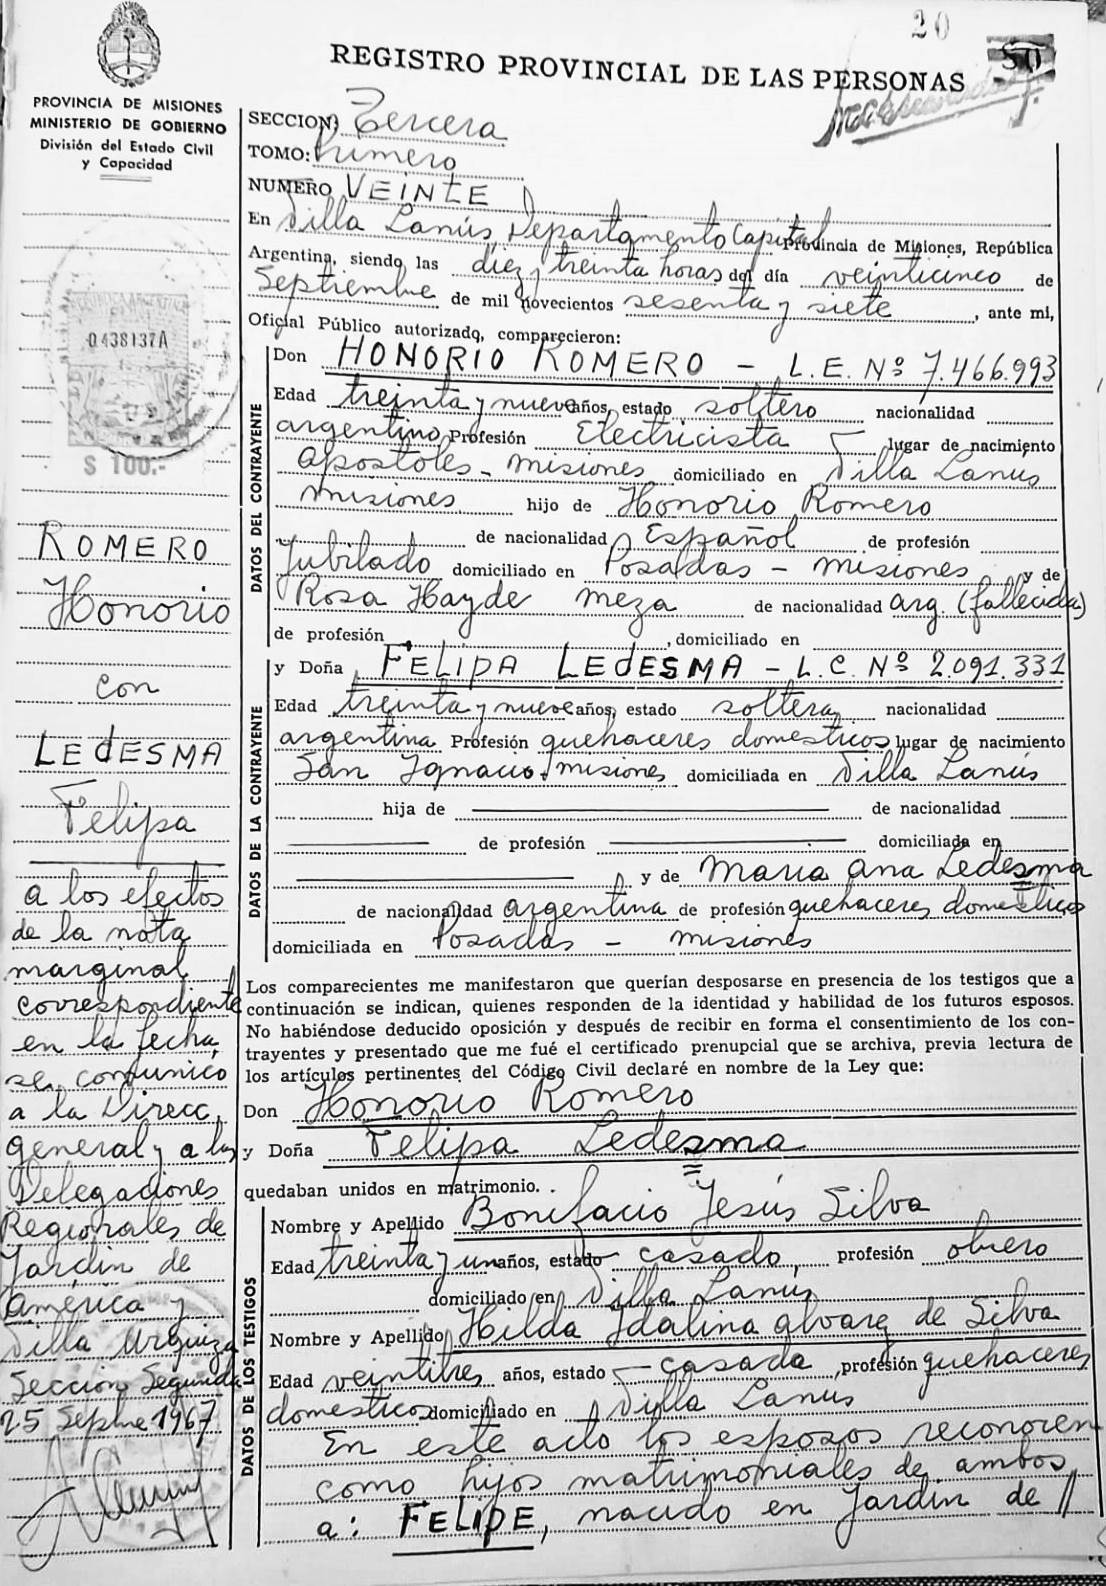 20
50
REGISTRO PROVINCIAL DE LAS PERSONAS
PROVINCIA DE MISIONES
MINISTERIO DE GOBIERNO
División del Estado Civil
y Capacidad
0438137A
$ 100.-
ROMERO
Honorio
con
LEDESMA
Felipa
a los efectos
de la nota
marginal
correspondiente
en la fecha,
se comunico
a la Direcc.
general y a las
Delegaciones
Regionales de
Jardin de
América y
Villa Urquiza
Seccion Segunda
25 Sepbre 1967
SECCION: Tercera
TOMO: Primero
NUMERO VEINTE
En Villa Lanús Departamento Capital Provincia de Misiones, República
Argentina, siendo las diez y treinta horas del día veinticinco de
Septiembre de mil novecientos sesenta y siete, ante mi,
Oficial Público autorizado, comparecieron:
DATOS DEL CONTRAYENTE
Don HONORIO ROMERO - L.E. Nº 7.466.993
Edad treinta y nueve años, estado soltero nacionalidad
argentino Profesión Electricista lugar de nacimiento
Apostoles - misiones domiciliado en Villa Lanus
misiones hijo de Honorio Romero
de nacionalidad Español de profesión
Jubilado domiciliado en Posadas - misiones y de
Rosa Hayde meza de nacionalidad arg. (fallecida)
de profesión , domiciliado en
DATOS DE LA CONTRAYENTE
y Doña FELIPA LEDESMA - L.C. Nº 2.091.331
Edad treinta y nueve años, estado soltera nacionalidad
argentina Profesión quehaceres domesticos lugar de nacimiento
San Ignacio - misiones domiciliada en Villa Lanús
hija de de nacionalidad
de profesión domiciliada en
y de Maria Ana Ledesma
de nacionalidad argentina de profesión quehaceres domesticos
domiciliada en Posadas - misiones
Los comparecientes me manifestaron que querían desposarse en presencia de los testigos que a
continuación se indican, quienes responden de la identidad y habilidad de los futuros esposos.
No habiéndose deducido oposición y después de recibir en forma el consentimiento de los con-
trayentes y presentado que me fué el certificado prenupcial que se archiva, previa lectura de
los artículos pertinentes del Código Civil declaré en nombre de la Ley que:
Don Honorio Romero
y Doña Felipa Ledesma
quedaban unidos en matrimonio.
DATOS DE LOS TESTIGOS
Nombre y Apellido Bonifacio Jesús Silva
Edad treinta y un años, estado casado, profesión obrero
domiciliado en Villa Lanús
Nombre y Apellido Hilda Idalina alvarez de Silva
Edad veintitres años, estado casada, profesión quehaceres
domesticos domiciliado en Villa Lanus
En este acto los esposos reconocen
como hijos matrimoniales de ambos
a: FELIPE, nacido en Jardin de //